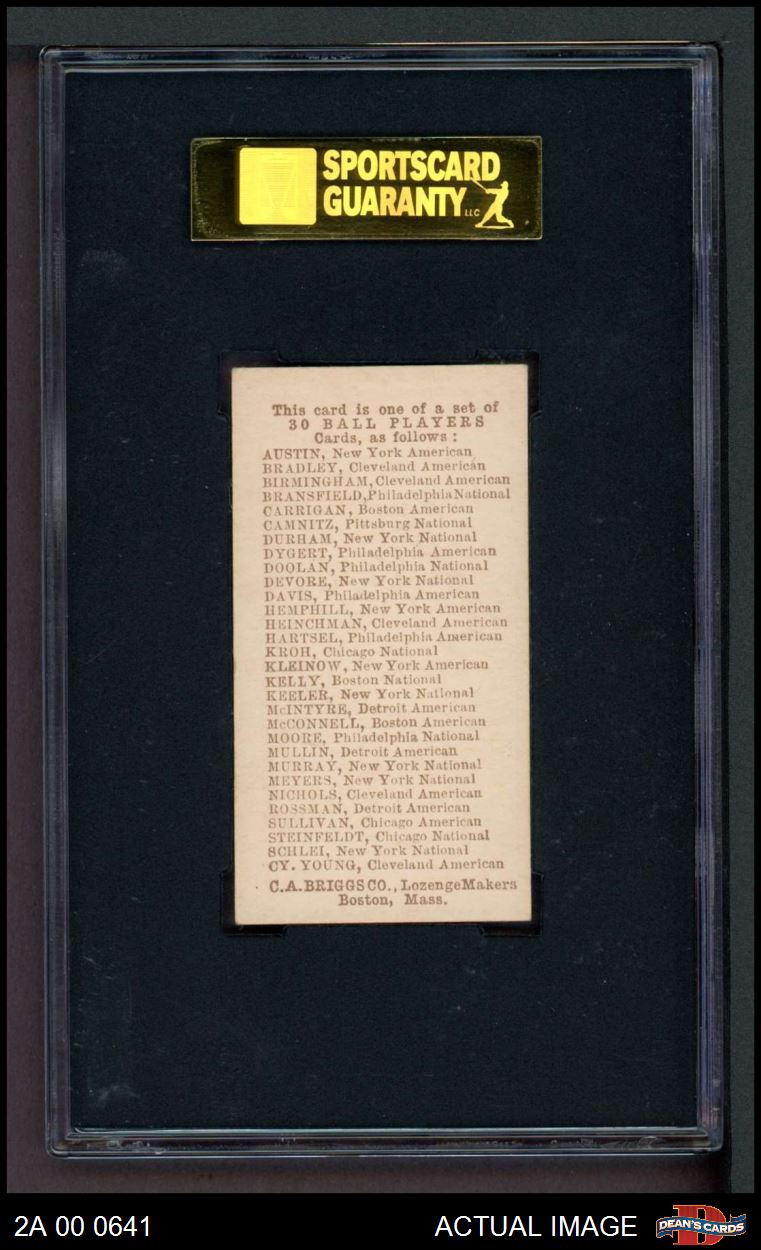 SPORTSCARD
GUARANTY LLC
This card is one of a set of
30 BALL PLAYERS
Cards, as follows :
AUSTIN, New York American
BRADLEY, Cleveland American
BIRMINGHAM, Cleveland American
BRANSFIELD, Philadelphia National
CARRIGAN, Boston American
CAMNITZ, Pittsburg National
DURHAM, New York National
DYGERT, Philadelphia American
DOOLAN, Philadelphia National
DEVORE, New York National
DAVIS, Philadelphia American
HEMPHILL, New York American
HEINCHMAN, Cleveland American
HARTSEL, Philadelphia American
KROH, Chicago National
KLEINOW, New York American
KELLY, Boston National
KEELER, New York National
McINTYRE, Detroit American
McCONNELL, Boston American
MOORE, Philadelphia National
MULLIN, Detroit American
MURRAY, New York National
MEYERS, New York National
NICHOLS, Cleveland American
ROSSMAN, Detroit American
SULLIVAN, Chicago American
STEINFELDT, Chicago National
SCHLEI, New York National
CY. YOUNG, Cleveland American
C.A. BRIGGS CO., Lozenge Makers
Boston, Mass.
2A 00 0641 ACTUAL IMAGE DEAN'S CARDS